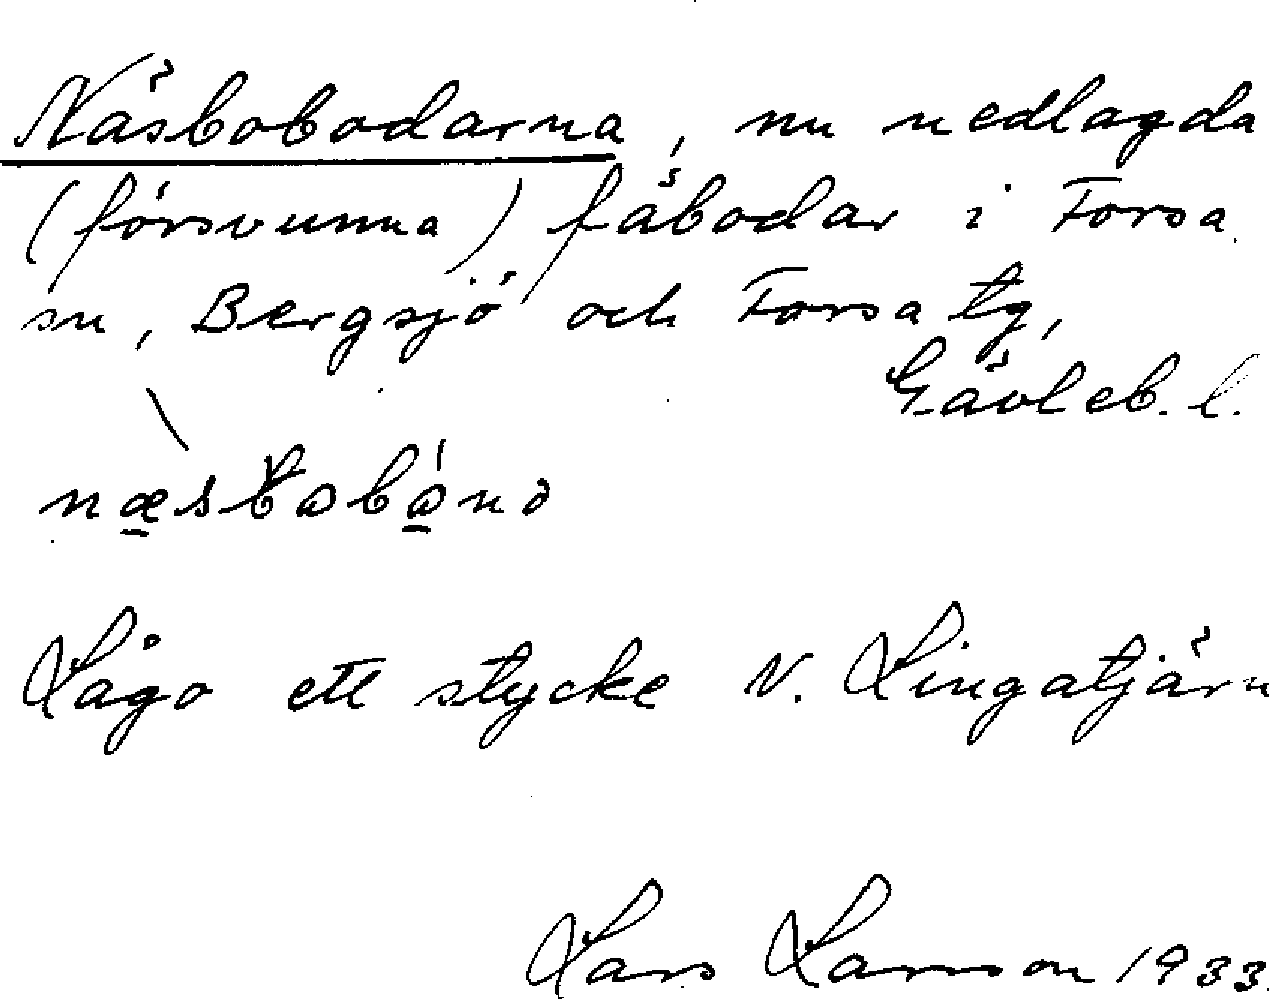 Näsbobodarna, nu nedlagda
(försvunna) fäbodar i Forsa
sn, Bergsjö och Forsa tg,
Gävleb. l.
Lågo ett stycke N. Lingatjärn
Lars Larsson 1933.